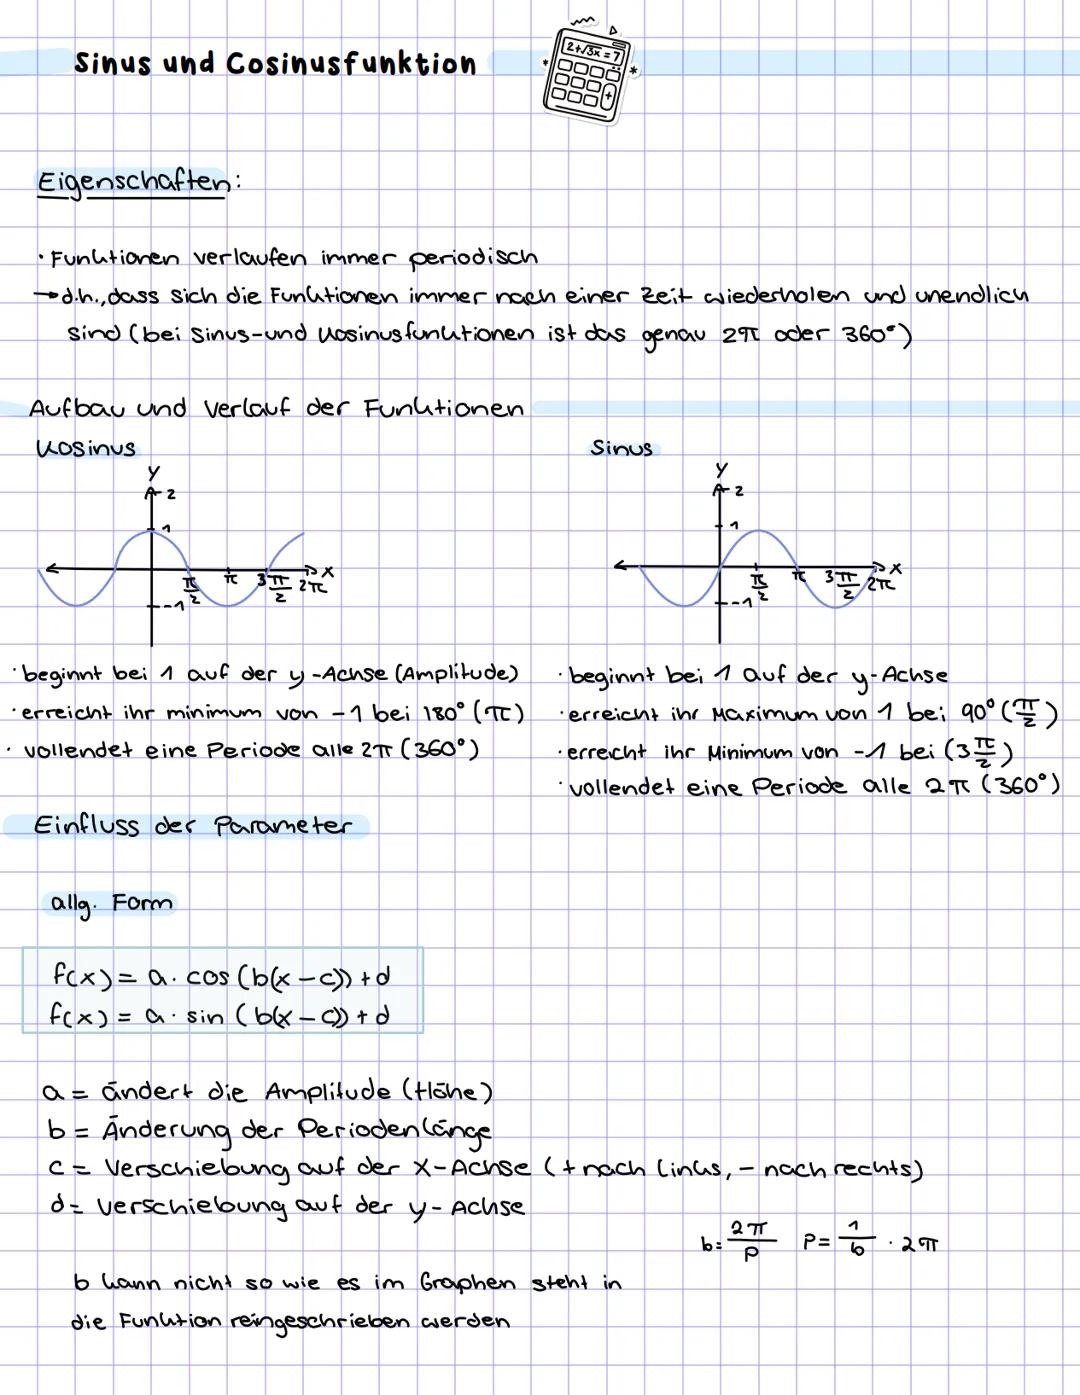 Sinus und Cosinusfunktion
2+√3x=7
+
Eigenschaften:
· Funktionen verlaufen immer periodisch
→ d.h., dass sich die Funktionen immer nach einer Zeit wiederholen und unendlich
sind (bei Sinus-und Kosinusfunktionen ist das genau 2π oder 360°)
Aufbau und Verlauf der Funktionen
Kosinus
y
2
1
π/2 π 3π/2 2π x
-1
Sinus
y
2
1
π/2 π 3π/2 2π x
-1
· beginnt bei 1 auf der y-Achse (Amplitude)
· erreicht ihr minimum von -1 bei 180° (π)
· vollendet eine Periode alle 2π (360°)
· beginnt bei 1 auf der y-Achse
· erreicht ihr Maximum von 1 bei 90° (π/2)
· erreicht ihr Minimum von -1 bei (3π/2)
· vollendet eine Periode alle 2π (360°)
Einfluss der Parameter
allg. Form
f(x) = a · cos (b(x-c)) + d
f(x) = a · sin (b(x-c)) + d
a = ändert die Amplitude (Höhe)
b = Änderung der Periodenlänge
c = Verschiebung auf der x-Achse (+ nach links, - nach rechts)
d = Verschiebung auf der y-Achse
b = 2π/p P = 1/b · 2π
b kann nicht so wie es im Graphen steht in
die Funktion reingeschrieben werden